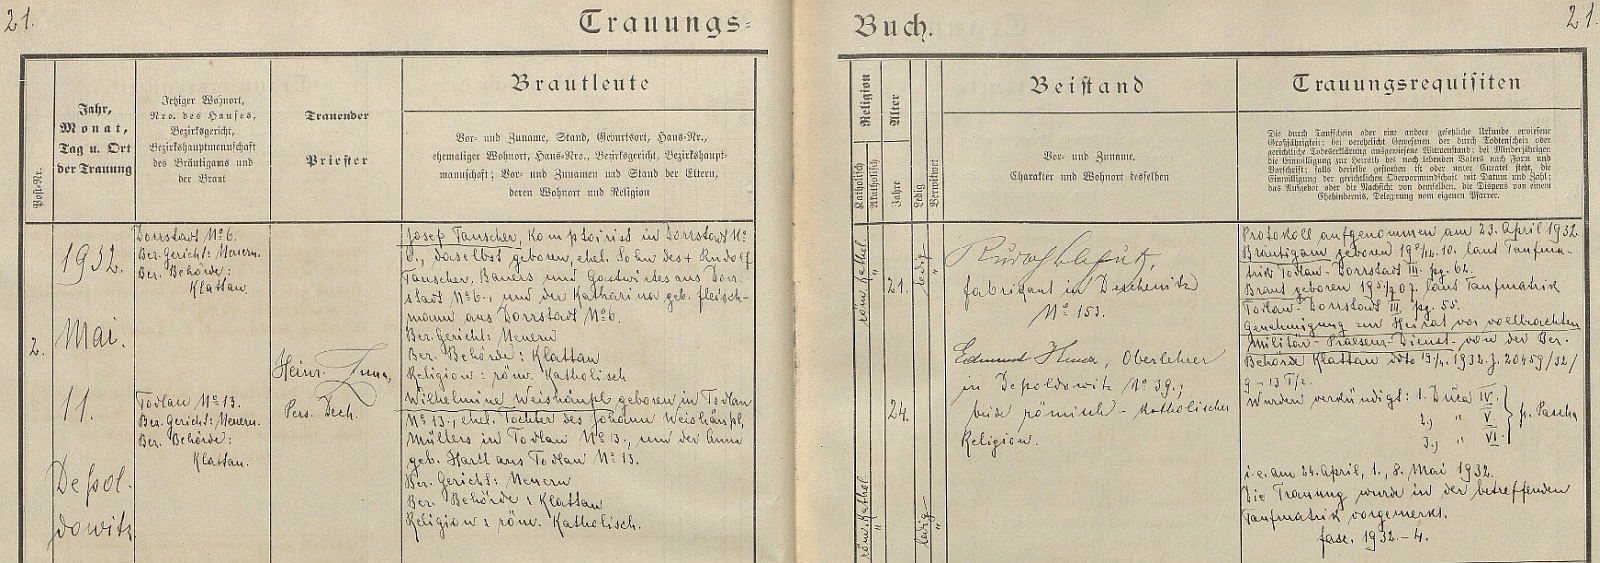 21.
Trauungs-
Buch.
21.
Post-Nr.
Jahr,
Monat,
Tag u. Ort
der Trauung
Jetziger Wohnort,
Nro. des Hauses,
Bezirksgericht,
Bezirkshauptmannschaft
des Bräutigams und
der Braut
Trauender
Priester
Brautleute
Vor- und Zuname, Stand, Geburtsort, Haus-Nr.,
ehemaliger Wohnort, Haus-Nro., Bezirksgericht, Bezirkshaupt-
mannschaft; Vor- und Zunamen und Stand der Eltern,
deren Wohnort und Religion
Religion
Katholisch
Akatholisch
Alter
Jahre
Ledig
Verwitwet
Beistand
Vor- und Zuname,
Charakter und Wohnort desselben
Trauungsrequisiten
Die durch Taufschein oder eine andere gesetzliche Urkunde erwiesene
Großjährigkeit; bei verehelicht Gewesenen der durch Todtenschein oder
gerichtliche Todeserklärung ausgewiesene Witwenstand; bei Minderjährigen
die Einwilligung zur Heirath des noch lebenden Vaters nach Form und
Vorschrift; falls derselbe gestorben ist oder unter Curatel steht, die
Einwilligung der gerichtlichen Obervormundschaft mit Datum und Zahl;
das Aufgebot oder die Nachsicht von demselben, die Dispens von einem
Ehehindernis, Delegirung vom eigenen Pfarrer.
2.
1932.
Mai.
11.
Depol-
dowitz
Dorrstadt No 6.
Bez. Gericht: Neuern.
Bez. Behörde:
Klattau.
Todlau No 13.
Bez. Gericht: Neuern.
Bez. Behörde:
Klattau.
Heinr.
Pers. Dech.
Josef Tauscher, Komptoirist in Dorrstadt No
6., daselbst geboren, ehel. Sohn des + Rudolf
Tauscher, Bauers und Gastwirtes aus Dorr-
stadt No 6., und der Katharina geb. Fleisch-
mann aus Dorrstadt No 6.
Bez. Gericht: Neuern
Bez. Behörde: Klattau
Religion: röm. Katholisch
Wilhelmine Weishäupl geboren in Todlau
No 13., ehel. Tochter des Johann Weishäupl,
Müllers in Todlau No 13., und der Anna
geb. Hartl aus Todlau No 13.
Bez. Gericht: Neuern
Bez. Behörde: Klattau
Religion: röm. Katholisch.
röm. Kathol
"
21.
ledig
"
röm. Kathol
"
24.
ledig
"
Rudolf
Fabrikant in Deschenitz
No 153.
Edmund Oberlehrer
in Depoldowitz No 39.;
beide römisch-katholischer
Religion.
Protokoll aufgenommen am 23. April 1932
Bräutigam geboren 10. laut Taufma-
trik Todlau-Dorrstadt III. pg. 62.
Braut geboren 07. laut Taufmatrik
Todlau-Dorrstadt III. pg. 55.
Genehmigung zur Heirat vor vollbrachten
Militär-Präsenz-Dienst von der Bez.
Behörde Klattau ddto 1932. Z. 20459/32/
Wurden verkündigt: 1. Dnica IV.
2.) " V.
3.) " VI.
p. Pascha
i. e. am 24. April, 1., 8. Mai 1932.
Die Trauung wurde in der betreffenden
Taufmatrik vorgemerkt.
fasc. 1932.-4.